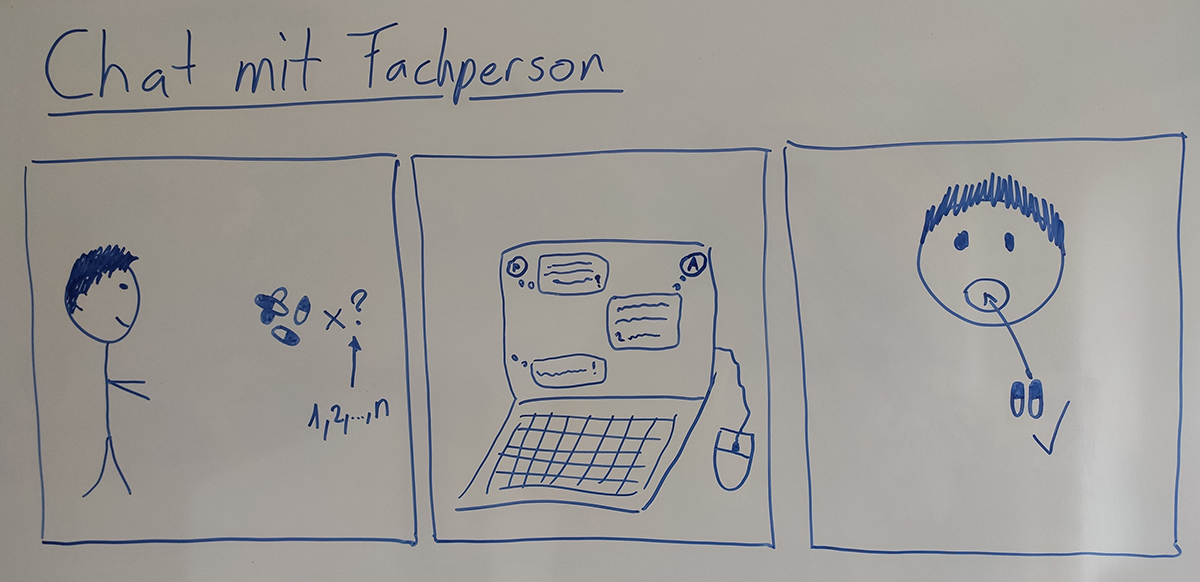 Chat mit Fachperson
x ?
1,2,...,n
P
A
?
2
!